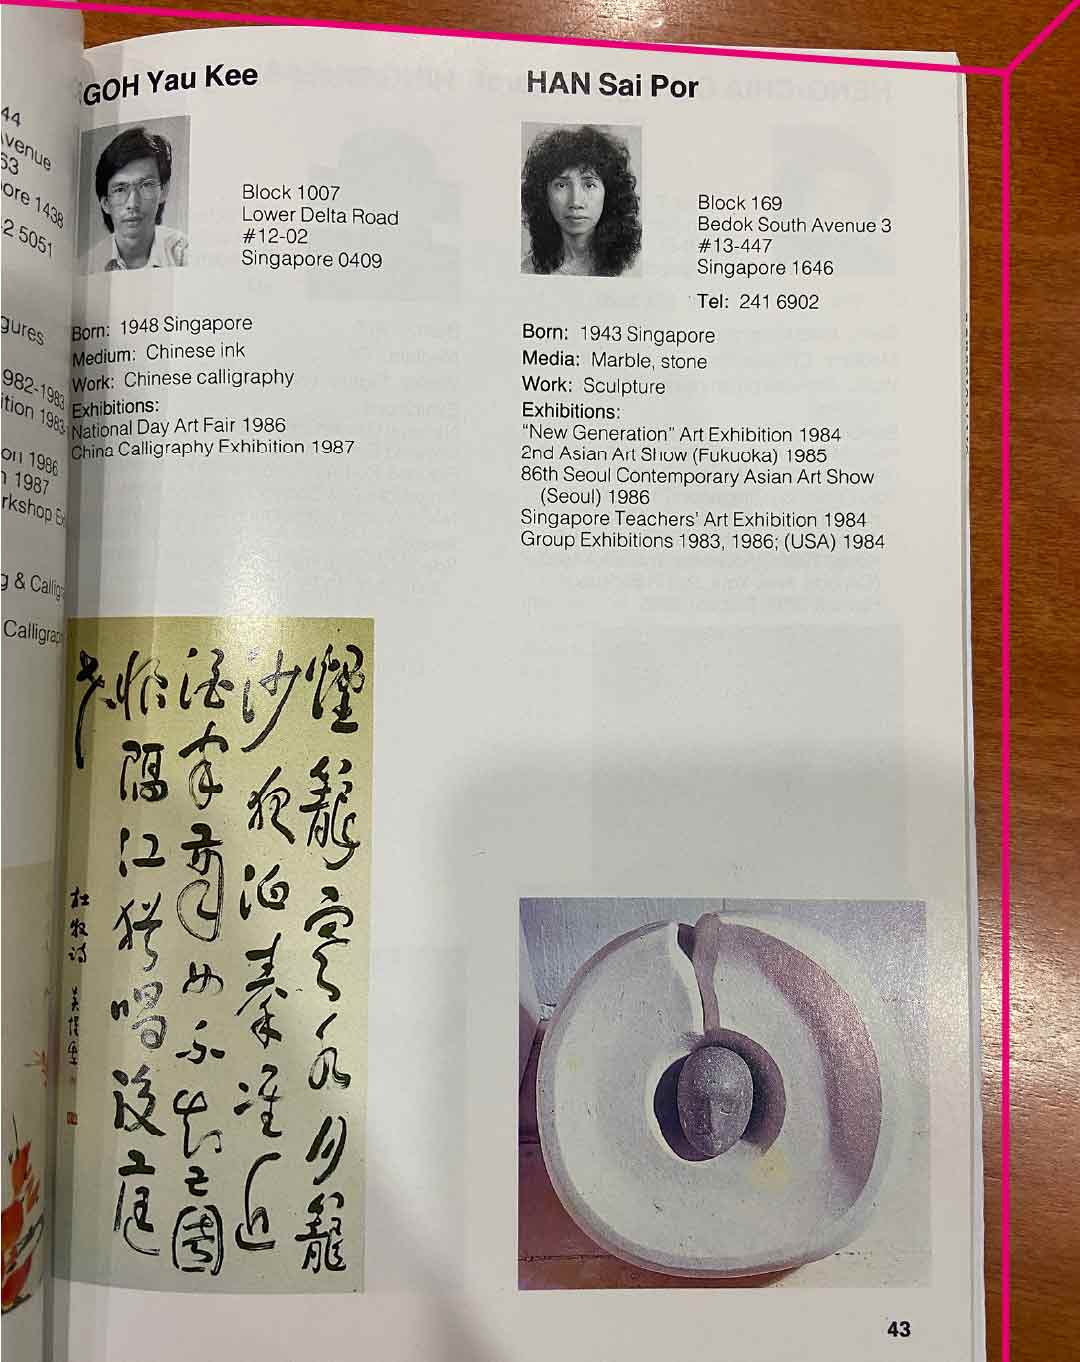 44
venue
63
ore 1438
2 5051
gures
982-1983
ition 1983-
on 1986
1987
rkshop
g & Callig
Calligrap
GOH Yau Kee
Block 1007
Lower Delta Road
#12-02
Singapore 0409
Born: 1948 Singapore
Medium: Chinese ink
Work: Chinese calligraphy
Exhibitions:
National Day Art Fair 1986
China Calligraphy Exhibition 1987
煙籠寒水月籠
沙夜泊秦淮近
酒家商女不知亡國
恨隔江猶唱後庭
花
杜牧詩
HAN Sai Por
Block 169
Bedok South Avenue 3
#13-447
Singapore 1646
Tel: 241 6902
Born: 1943 Singapore
Media: Marble, stone
Work: Sculpture
Exhibitions:
“New Generation” Art Exhibition 1984
2nd Asian Art Show (Fukuoka) 1985
86th Seoul Contemporary Asian Art Show
(Seoul) 1986
Singapore Teachers’ Art Exhibition 1984
Group Exhibitions 1983, 1986; (USA) 1984
43